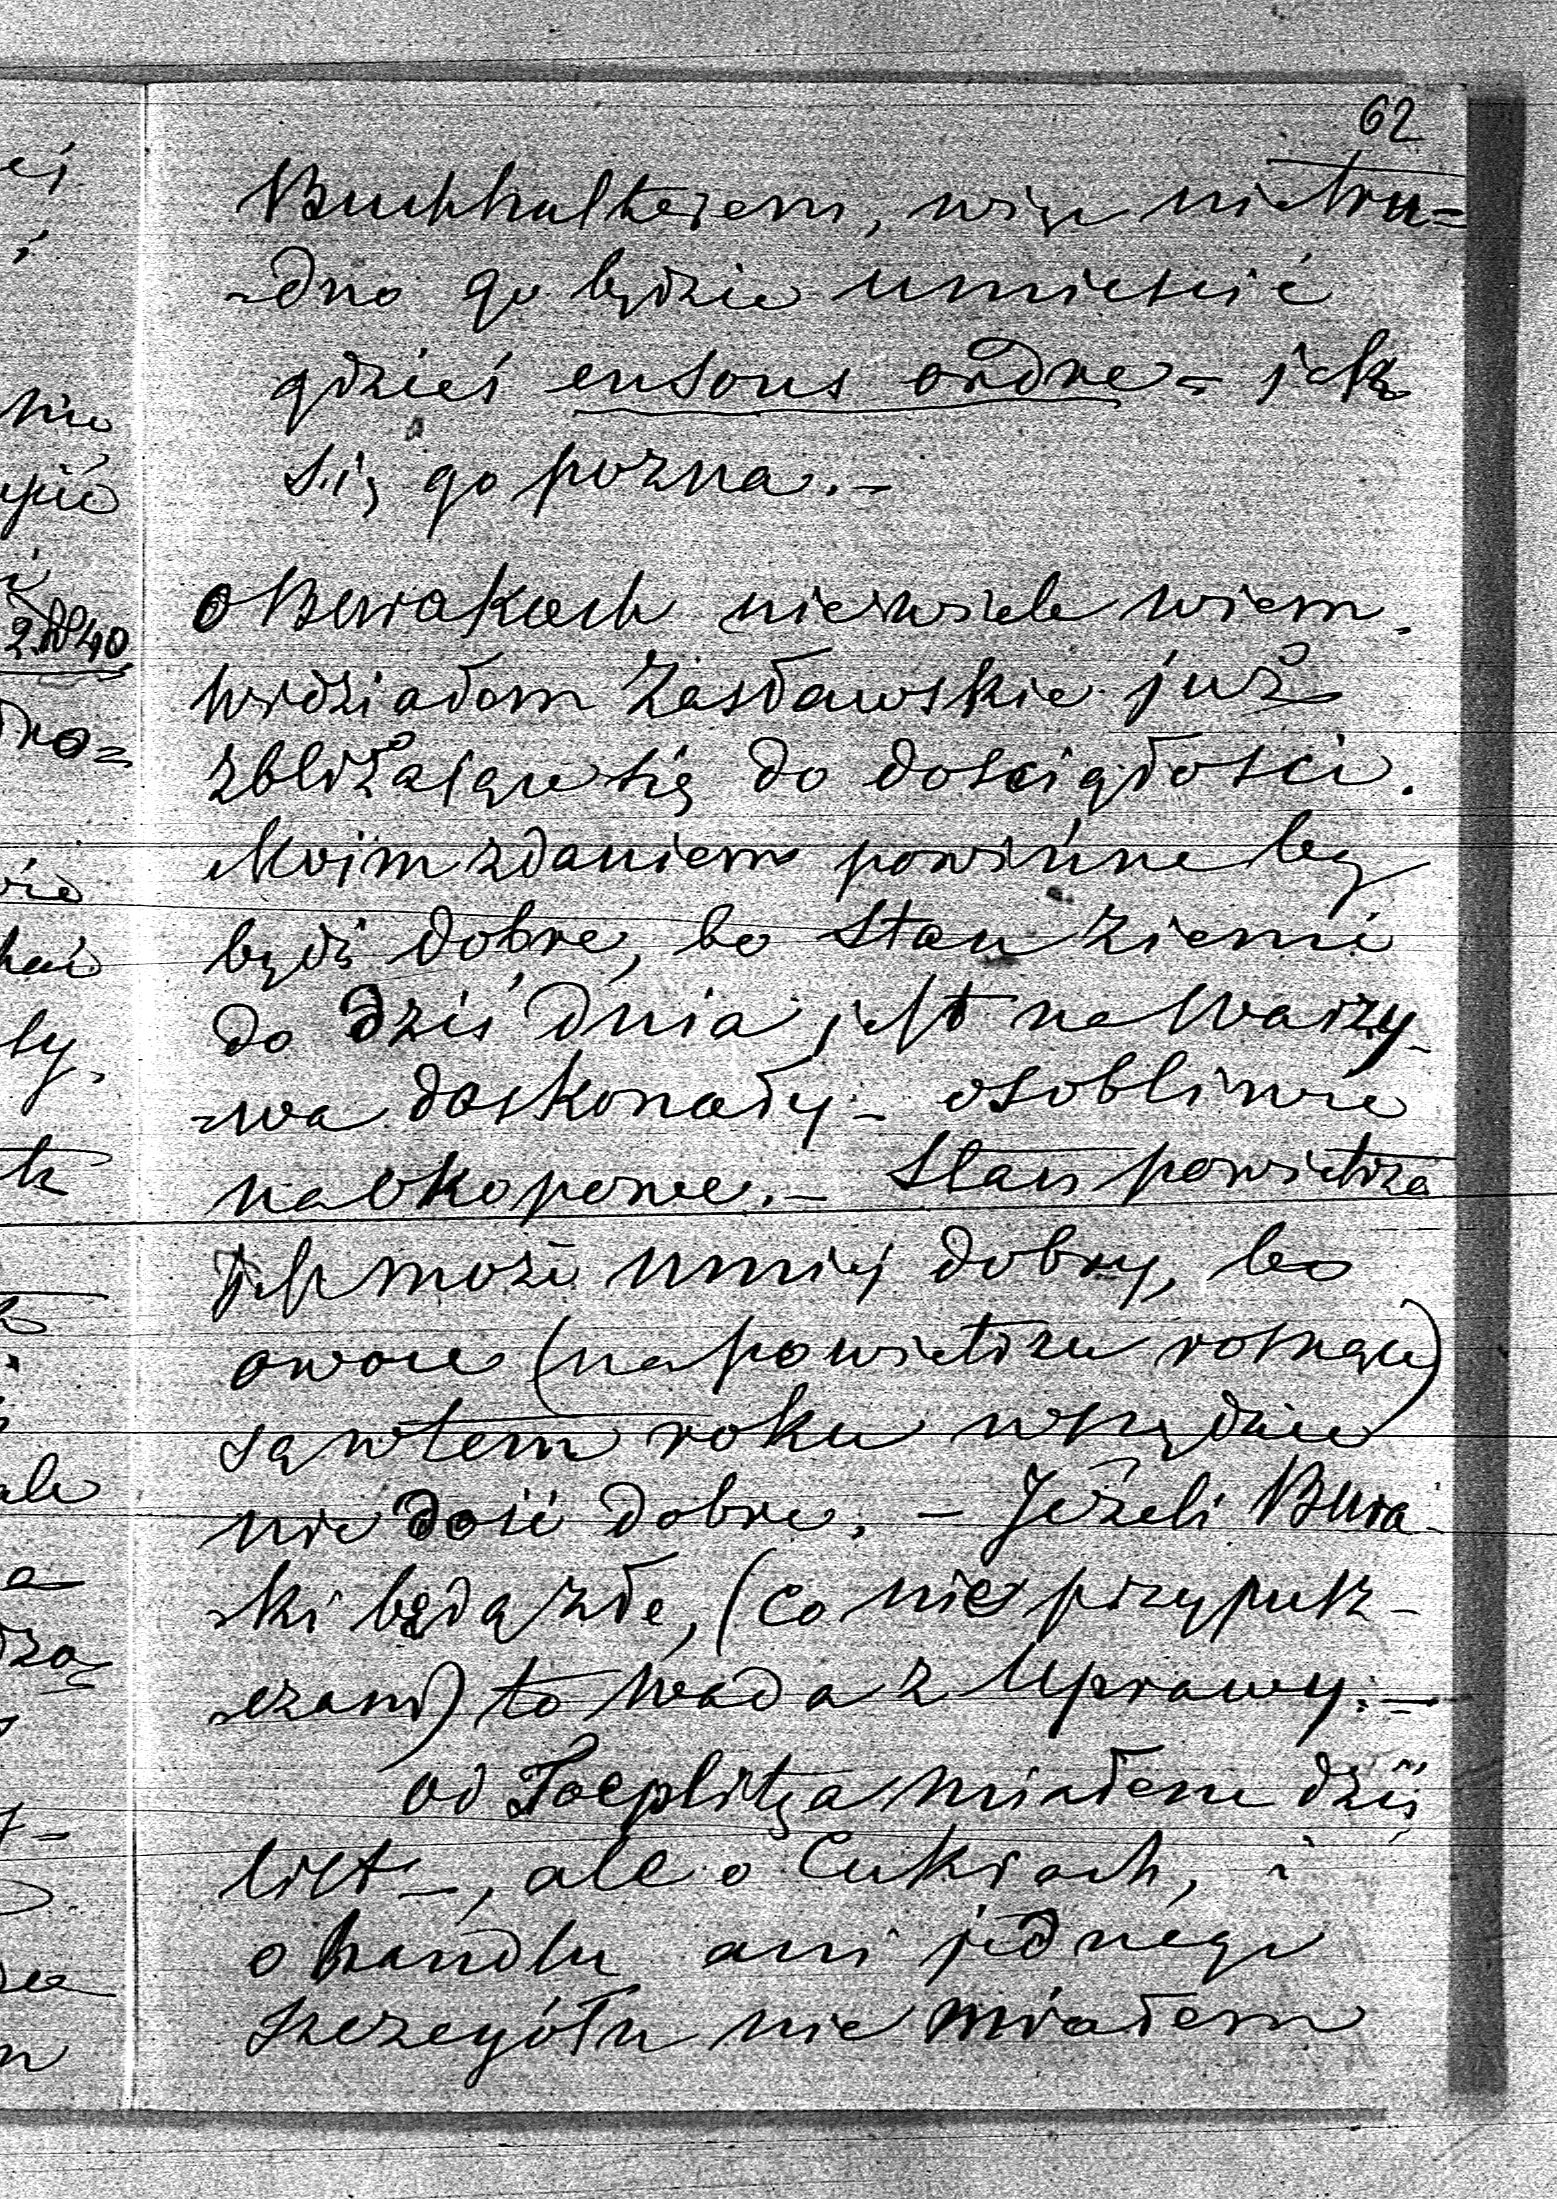 62
Buchhalterem, więc nietru=
-dno go będzie umieścić
gdzieś ensous ordre – jak
się go pozna. –
o Burakach niewiele wiem.
widziałem Zasławskie już
zbliżające się do dościgłości.
Moim zdaniem powinne by
bydź dobre, bo stan ziemi
do dziś dnia jest na Warzy-
-wa doskonały – osobliwie
na okopowe. – Stan powietrza
jest może mniej dobry, bo
owoce (na powietrzu rosnące)
są w tem roku wszędzie
nie dość dobre. – Jeżeli Bura-
-ki będą złe, (co nie przypusz-
-czam) to wada z Uprawy. –
od Toeplitza miałem dziś
list –, ale o Cukrach, i
o handlu ani jednego
szczegółu nie miałem